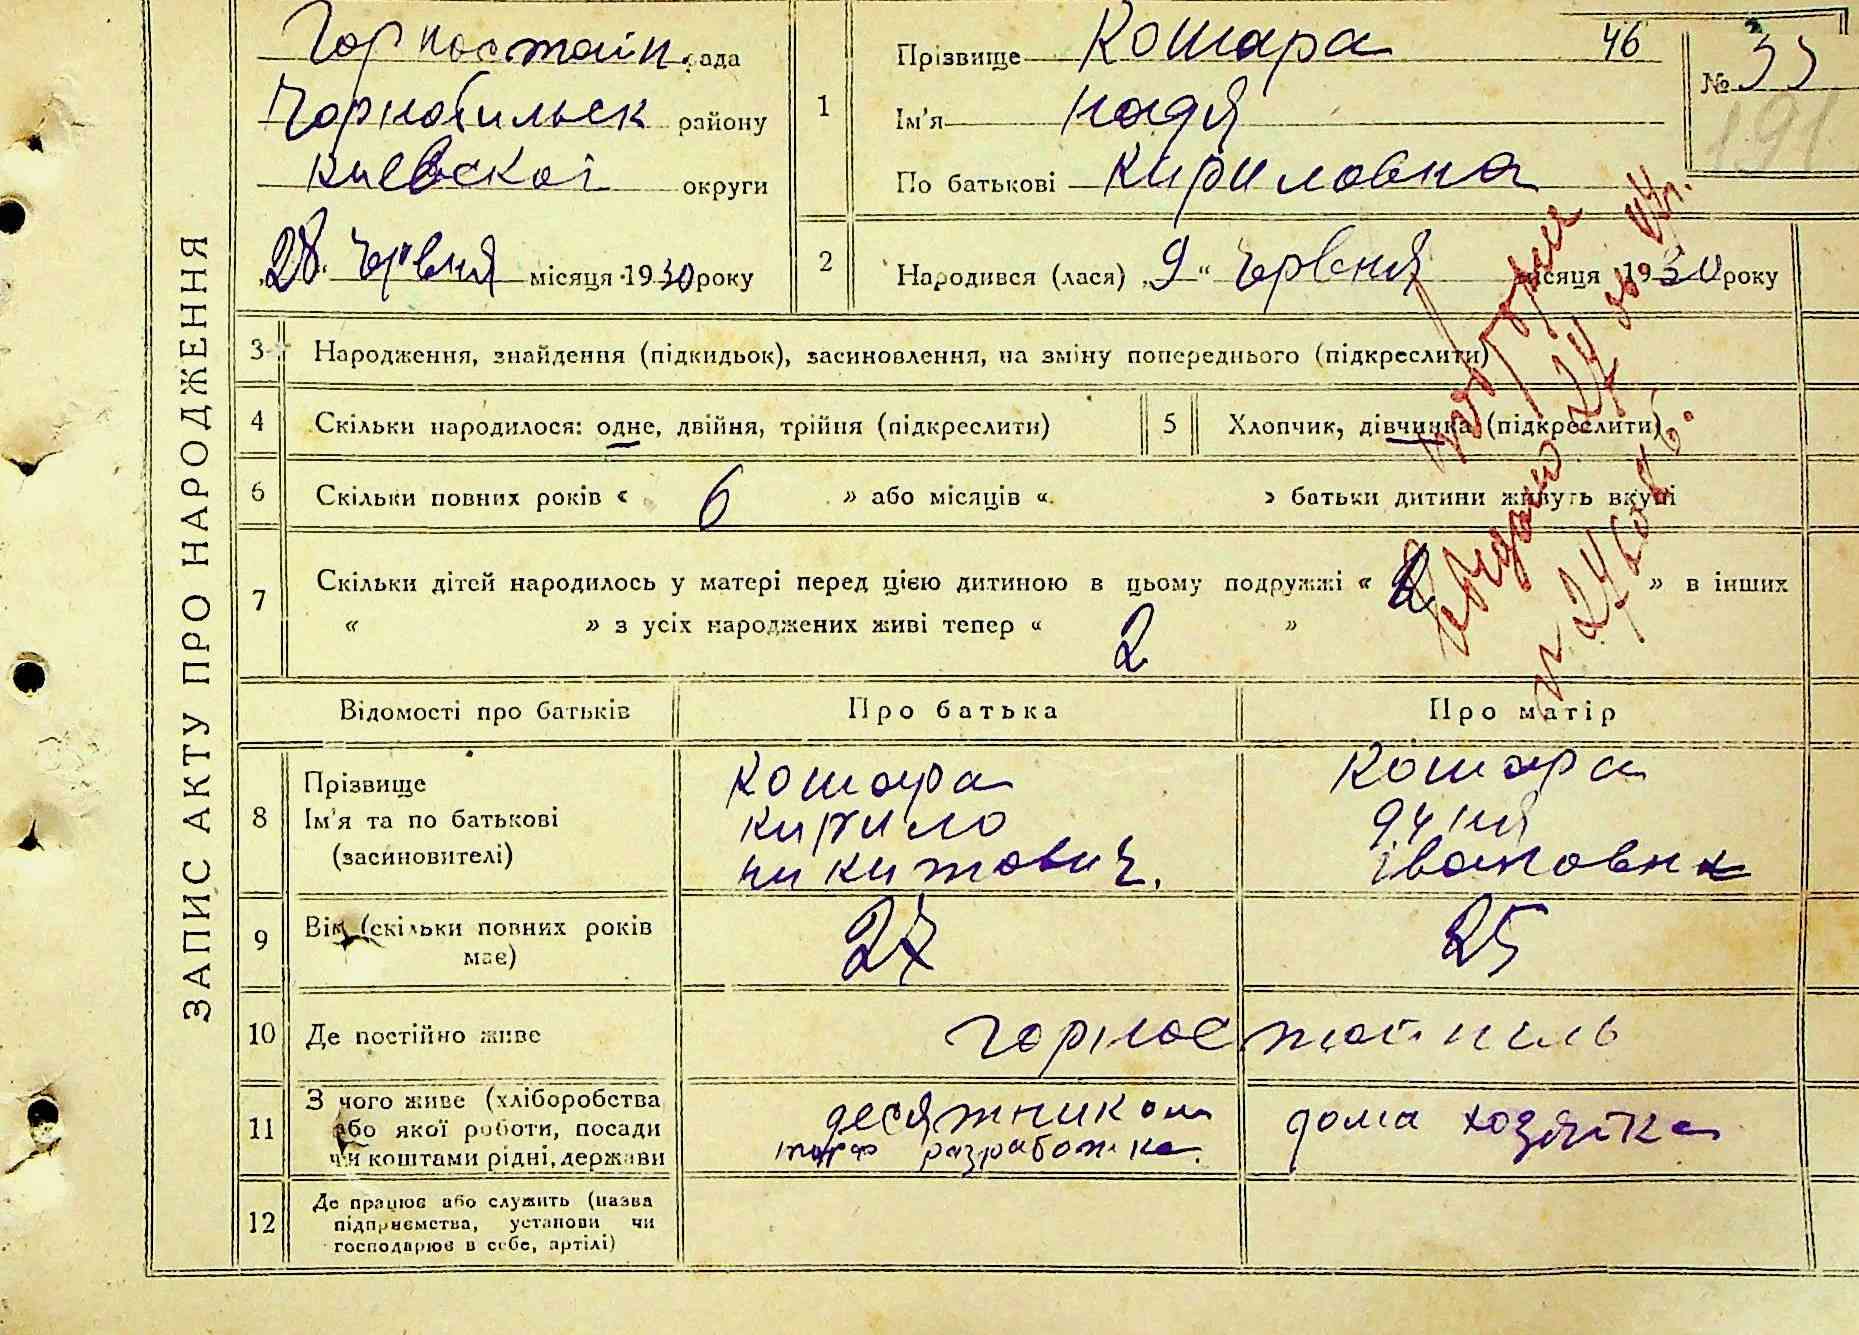 ЗАПИС АКТУ ПРО НАРОДЖЕННЯ
Горностайп. рада
Чорнобильск району
Киевскої округи
„28“ Червня місяця 1930 року
1
Прізвище Кошара 46
Ім'я Надя
По батькові Кириловна
№ 33
191
2 Народився (лася) „9“ Червня місяця 1930 року
3 Народження, знайдення (підкидьок), засиновлення, на зміну попереднього (підкреслити)
4 Скільки народилося: одне, двійня, трійня (підкреслити)
5 Хлопчик, дівчинка (підкреслити)
6 Скільки повних років « 6 » або місяців « » батьки дитини живуть вкупі
7 Скільки дітей народилось у матері перед цією дитиною в цьому подружжі « 2 » в інших
« » з усіх народжених живі тепер « 2 »
Відомості про батьків Про батька Про матір
8 Прізвище
Ім'я та по батькові
(засиновителі)
Кошара
Кирило
Никитович.
Кошара
Івановна
9 Вік (скільки повних років
має)
27
25
10 Де постійно живе Горностайпиль
11 З чого живе (хліборобства
або якої роботи, посади
чи коштами рідні, держави
десятником
торф разработка.
дома хозяйка
12 Де працює або служить (назва
підприємства, установи чи
господарює в себе, артілі)